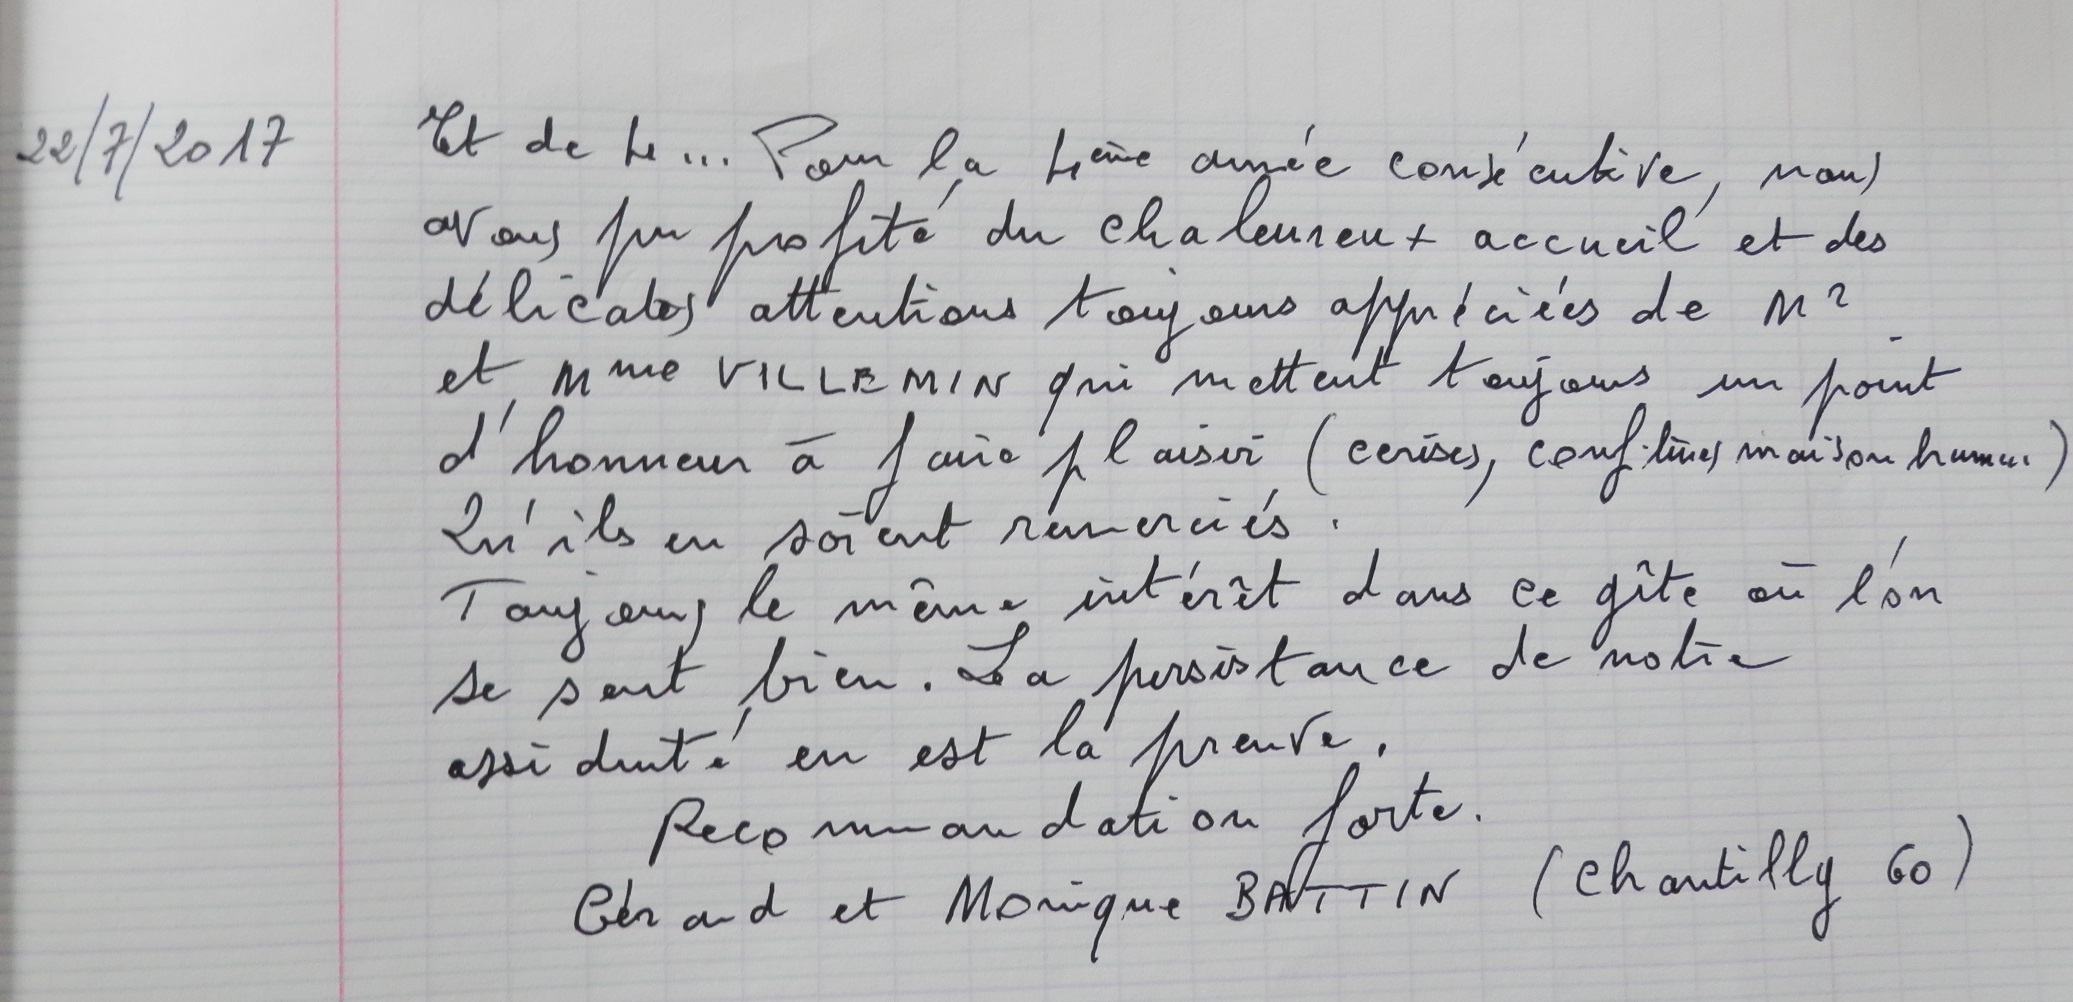 22/7/2017 Et de 4... Pour la 4ème année consécutive, nous
avons pu profité du chaleureux accueil et des
délicates attentions toujours appréciées de Mr
et Mme VILLEMIN qui mettent toujours un point
d'honneur à faire plaisir (cerises, confitures maison)
Qu'ils en soient remerciés.
Toujours le même intérêt dans ce gîte où l'on
se sent bien. La persistance de notre
assiduité en est la preuve.
Recommandation forte.
Gérard et Monique BATTIN (Chantilly 60)